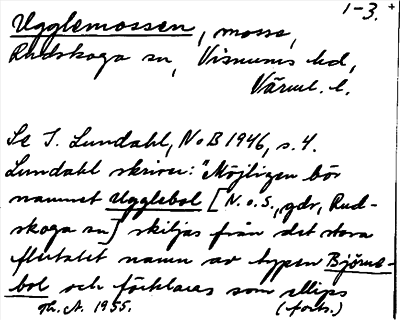 1-3.
Ugglemossen, mosse,
Rudskoga sn, Visnums hd,
Värml. l.
Se I. Lundahl, NoB 1946, s. 4.
Lundahl skriver: "Möjligen bör
namnet Ugglebol [N. o. S., gdr, Rud-
skoga sn] skiljas från det stora
flertalet namn av typen Björns-
bol och förklaras som ellips
Th. A. 1955. (forts.)